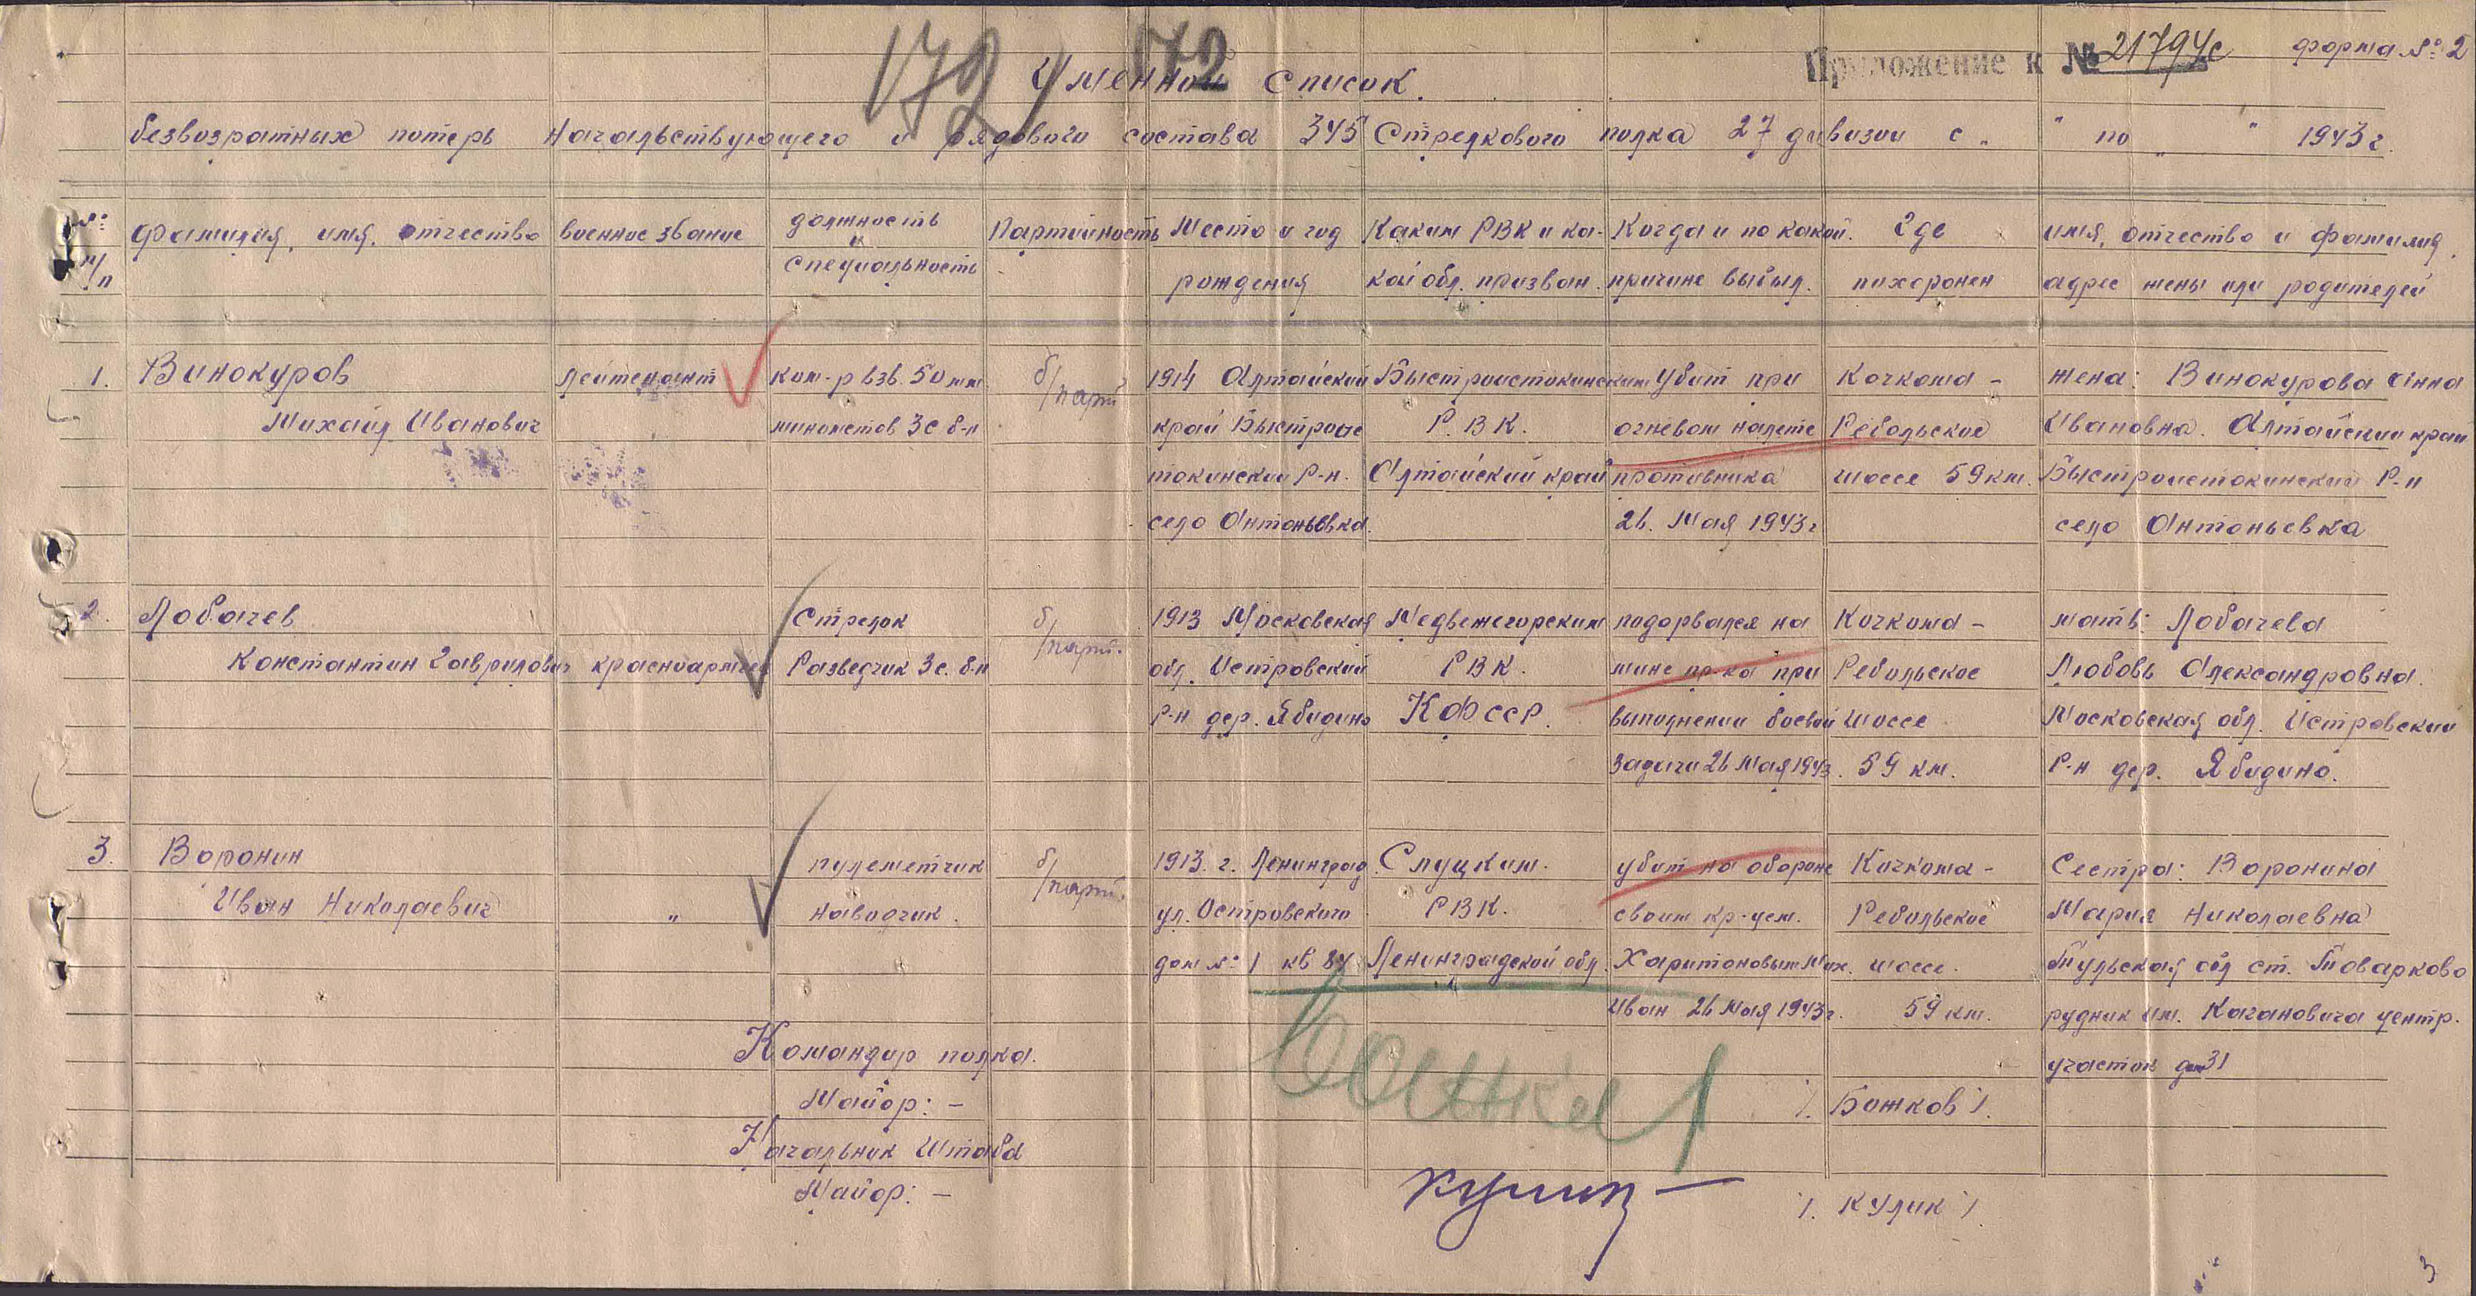 172 172
Приложение к № 21794с форма № 2
Именной список.
безвозратных потерь начальствующего и рядового состава 345 Стрелкового полка 27 дивизии с „ " по „ " 1943 г.
№ п/п
фамилия, имя, отчество
военное звание
должность и специальность
Партийность
Место и год
рождения
Каким РВК и ка-
кой обл. призван.
Когда и по какой
причине выбыл.
Где
похоронен
имя, отчество и фамилия,
адрес жены или родителей
1.
Винокуров
Михаил Иванович
лейтенант
ком-р взв. 50 мм
минометов 3 с. б-н
б/парт
1914 Алтайский
край Быстроис
токинский р-н.
село Антоньевка.
Быстроистокинским
Р.В.К.
Алтайский край
убит при
огневом налете
противника
26. Мая 1943 г
Кочкома -
Ребольское
шоссе 59 км.
жена: Винокурова Анна
Ивановна. Алтайский край
Быстроистокинский Р-н
село Антоньевка
2.
Лобачев
Константин Гаврилович
красноармеец
Стрелок
Разведчик 3 с. б-н
б/парт.
1913 Московская
обл. Истровский
р-н дер. Ябидино
Медвежегорским
РВК.
КФССР.
подорвался на
мине пр-ка при
выполнении боевой
задачи 26 мая 1943.
Кочкома -
Ребольское
шоссе
59 км.
мать: Лобачева
Любовь Александровна.
Московская обл. Истровский
Р-н дер. Ябидино.
3.
Воронин
Иван Николаевич
"
пулеметчик
наводчик.
б/парт.
1913. г. Ленинград
ул. Островского
дом № 1 кв 84
Слуцким.
РВК.
Ленинградской обл.
убит на обороне
своим кр-цем.
Харитоновым
Иван 26 мая 1943 г.
Кочкома -
Ребольское
шоссе.
59 км.
Сестра: Воронина
Мария Николаевна
Тульская обл ст. Товарково
рудник им. Кагановича центр.
участок дом 31
Командир полка.
Майор: -
/. Божков /.
Начальник Штаба
Майор: -
/. Кулик /.
3